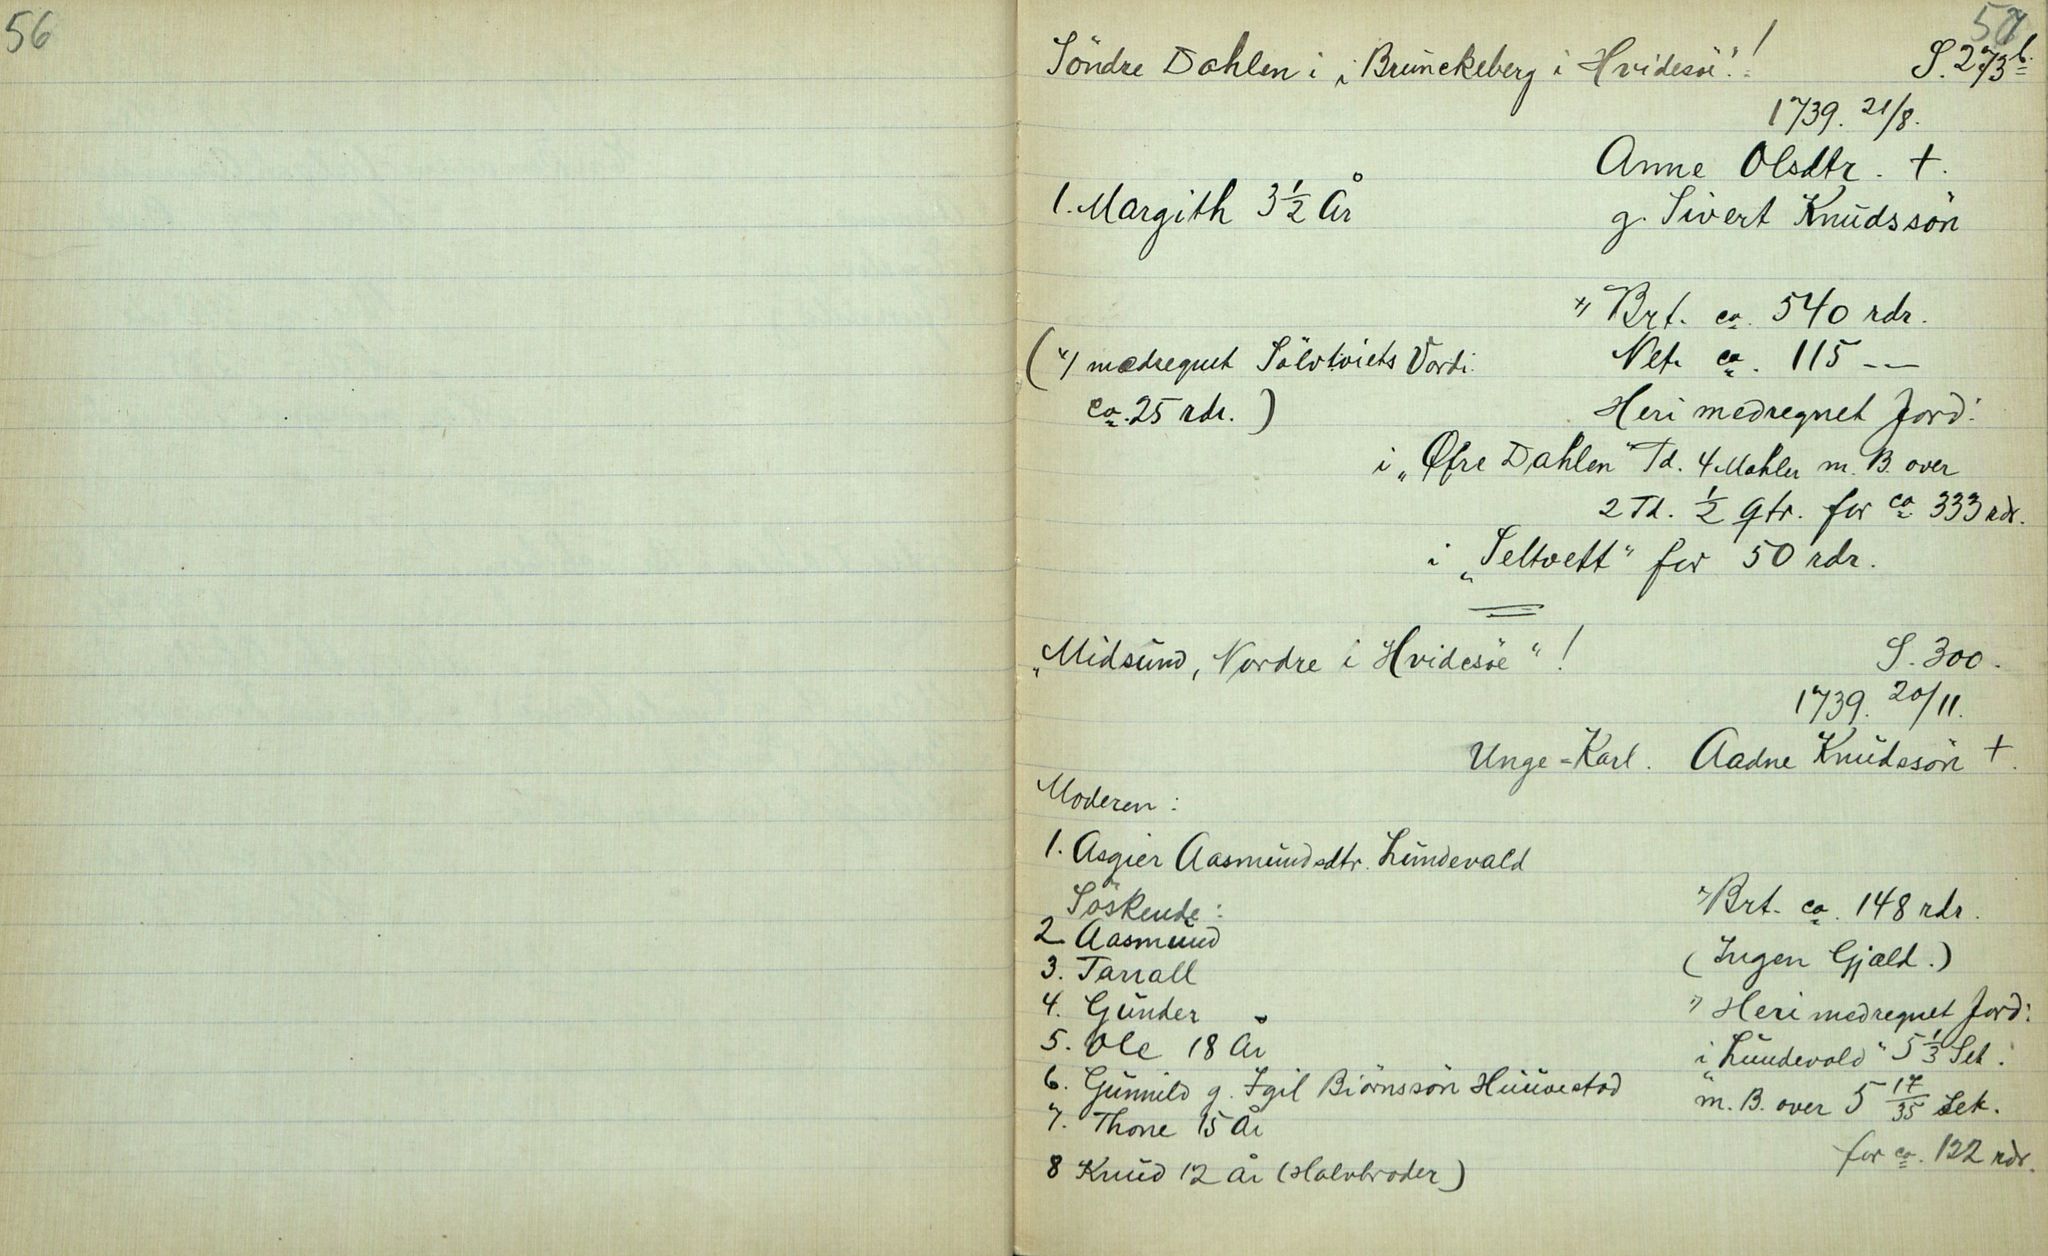 56
57
Söndre Dahlen i i Brunckeberg i Hvidesöe"! S. 273b.
1739. 21/8.
Anne Olsdtr. +.
1. Margith 3 1/2 År
g. Sivert Knudssön
*) Brt. ca. 540 rdr.
(*) medregnet Sölvtoiets Værdi
Net. ca. 115 --
ca. 25 rdr.)
Heri medregnet Jord:
i „Øfre Dahlen" Td. 4 Mæhler m. B. over
2 Td. 1/2 qtr. for ca. 333 rdr.
i „Seltvett" for 50 rdr.
„Midsund, Nordre i Hvidesöe"! S. 300.
1739. 20/11.
Unge-Karl. Aadne Knudssön +.
Moderen:
1. Asgier Aasmundsdtr. Lundevald
Söskende:
*) Brt. ca. 148 rdr.
2 Aasmund
(Ingen Gjæld.)
3. Tarrall
4. Gunder
*) Heri medregnet Jord:
5. Ole 18 År
i „Lundevald" 5 1/3 Set.
6. Gunnild g. Igil Biörnssön Huuvestad
m. B. over 5 17/35 Sek.
7. Thone 15 År
for ca. 122 rdr.
8 Knud 12 År (Halvbroder)